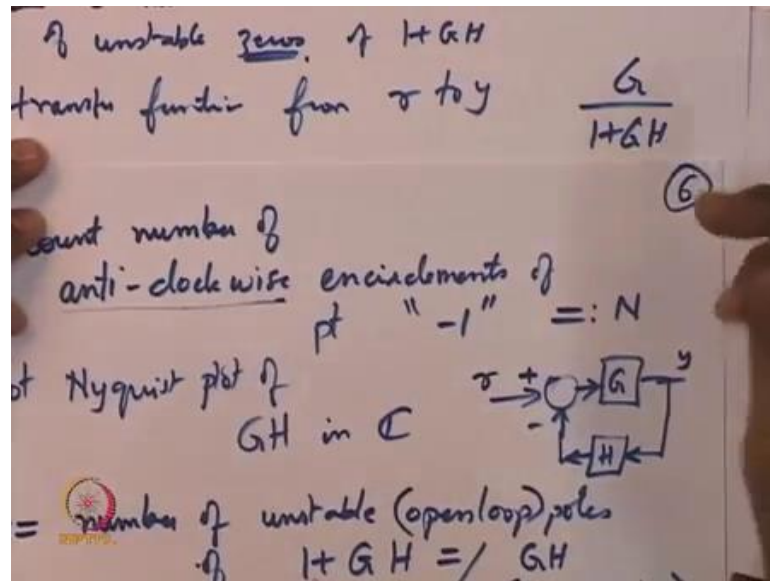 of unstable zeros. of 1+GH
transfer function from r to y G/(1+GH)
6
count number of
anti-clockwise encirclements of
pt "-1" =: N
Nyquist plot of
GH in ℂ
r + - G y H
= number of unstable (open loop) poles
of 1+GH =/ GH
NPTEL